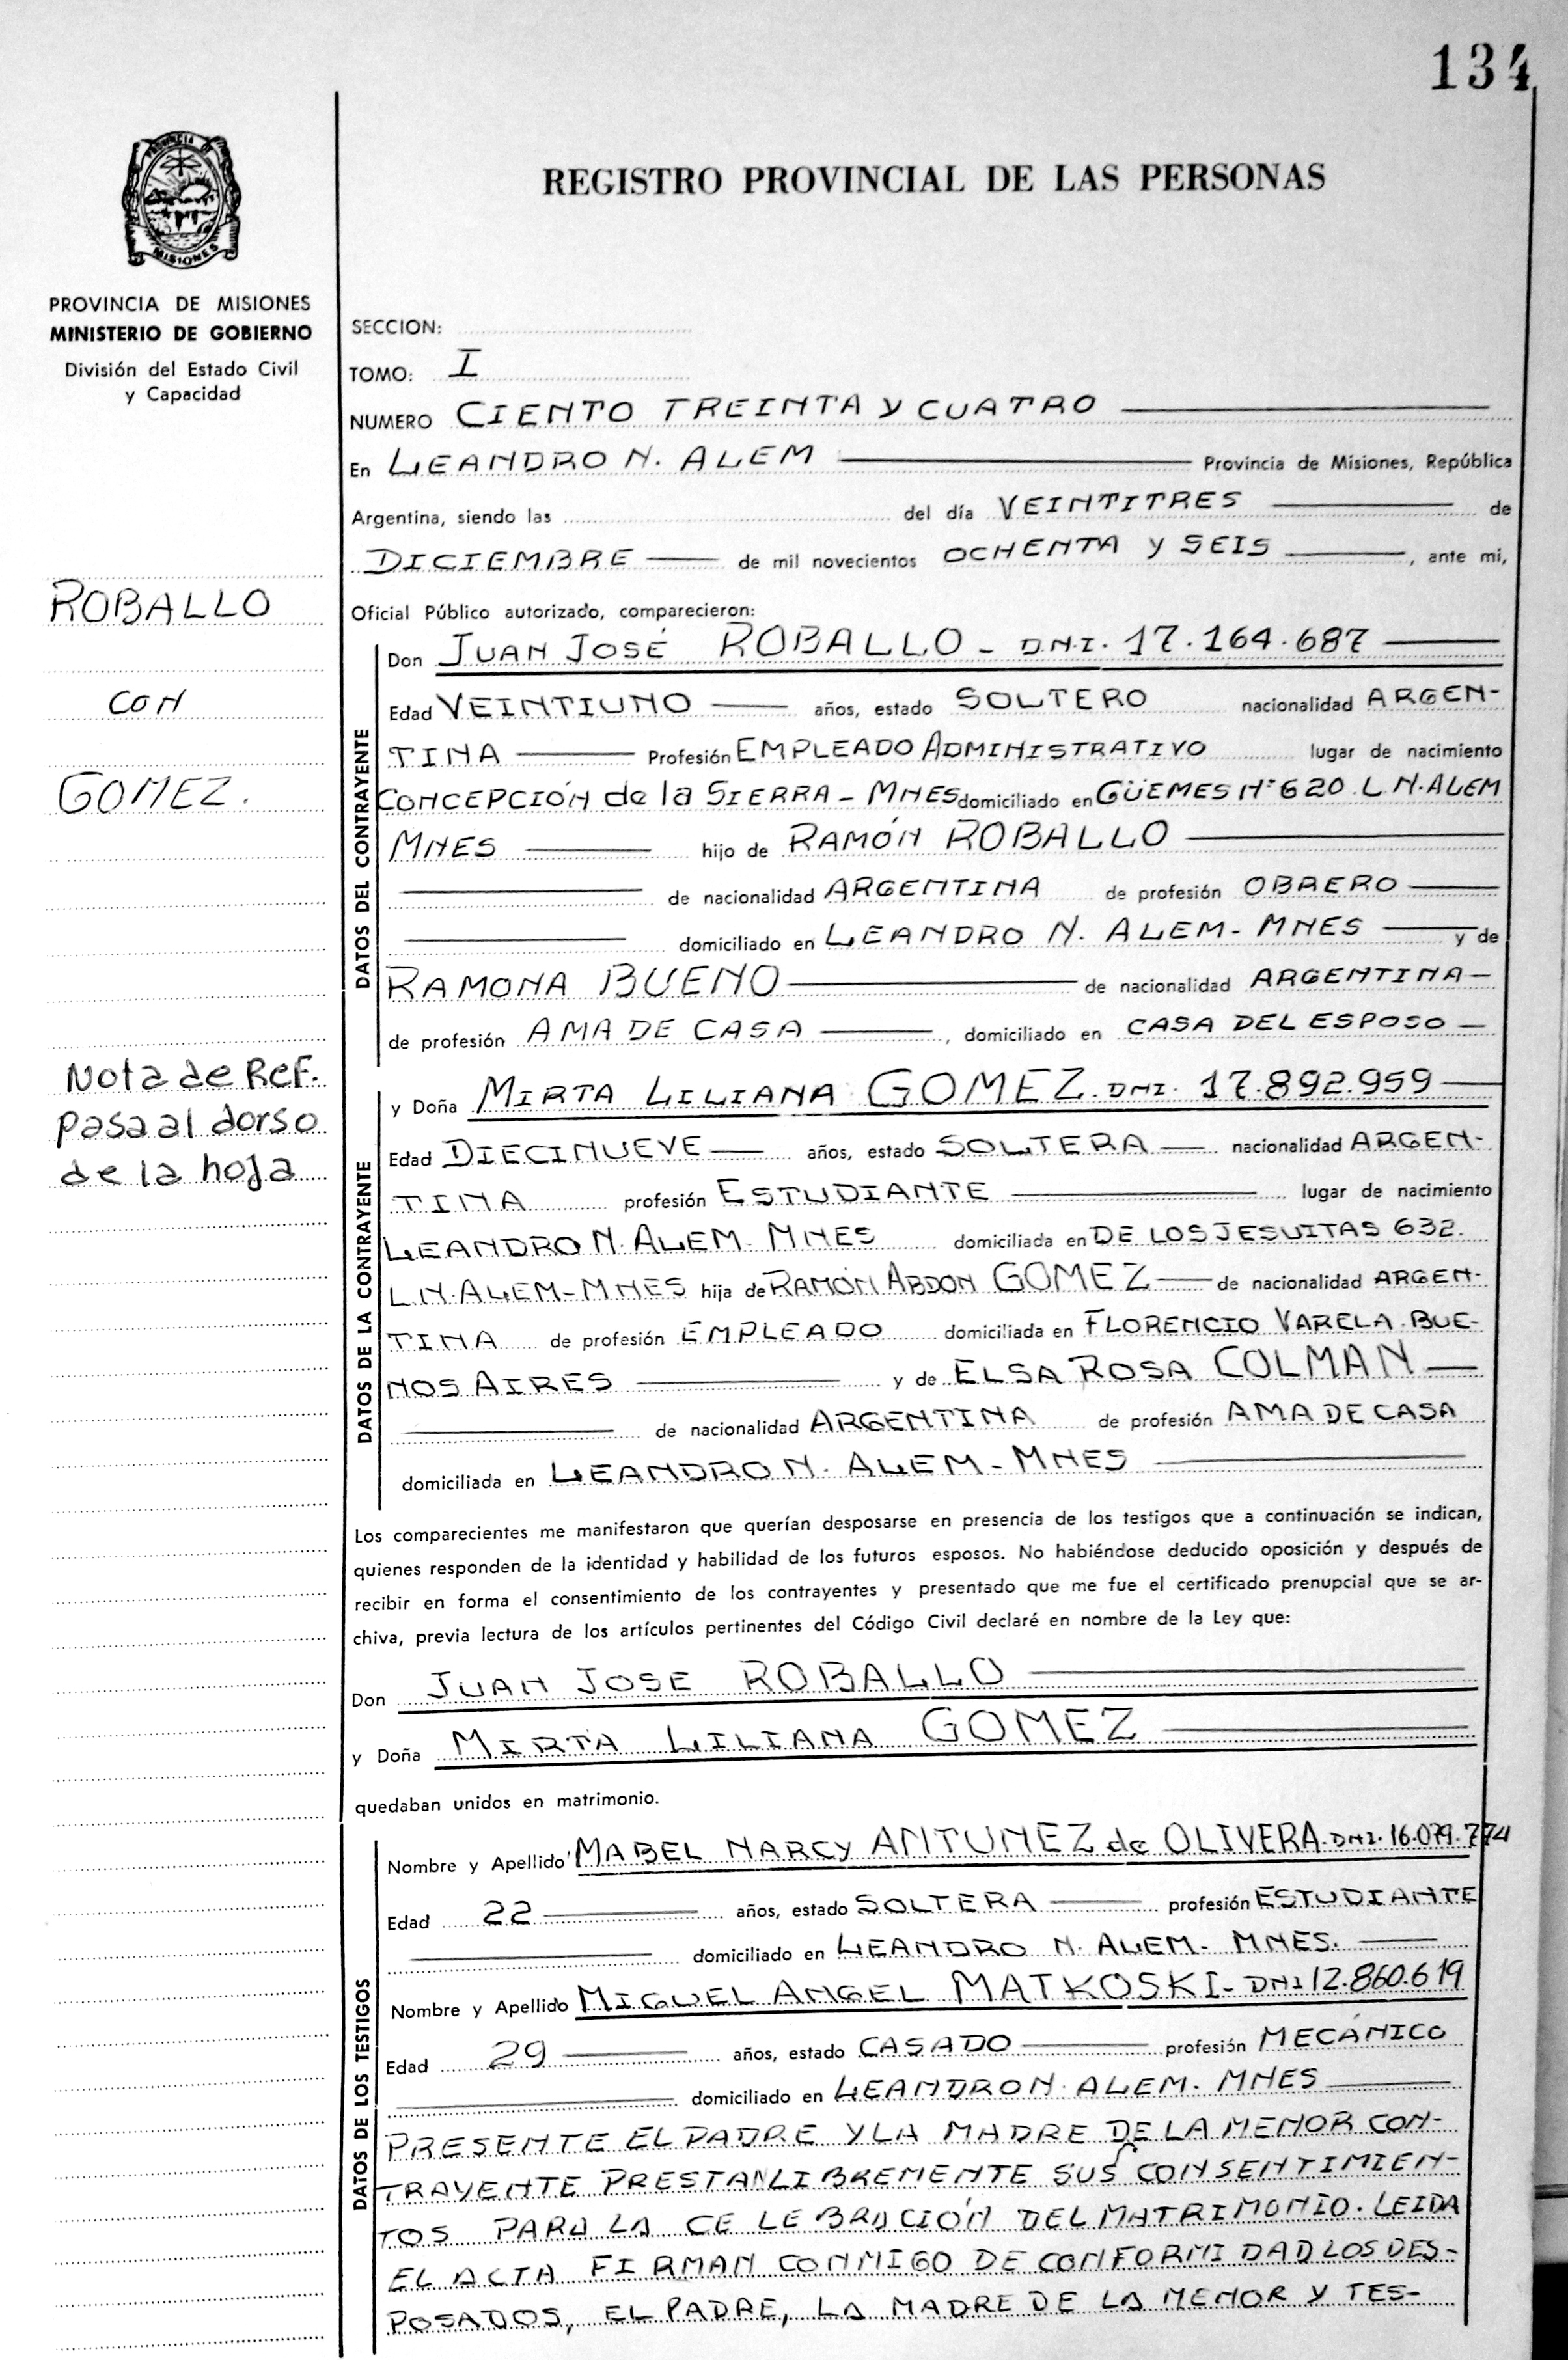 134
PROVINCIA DE
MISIONES
PROVINCIA DE MISIONES
MINISTERIO DE GOBIERNO
División del Estado Civil
y Capacidad
ROBALLO
CON
GOMEZ.
Nota de Ref.
pasa al dorso
de la hoja
REGISTRO PROVINCIAL DE LAS PERSONAS
SECCION:
TOMO: I
NUMERO CIENTO TREINTA Y CUATRO
En LEANDRO N. ALEM Provincia de Misiones, República
Argentina, siendo las del día VEINTITRES de
DICIEMBRE de mil novecientos OCHENTA Y SEIS, ante mi,
Oficial Público autorizado, comparecieron:
DATOS DEL CONTRAYENTE
Don JUAN JOSÉ ROBALLO - DNI. 17.164.687
Edad VEINTIUNO años, estado SOLTERO nacionalidad ARGEN-
TINA Profesión EMPLEADO ADMINISTRATIVO lugar de nacimiento
CONCEPCIÓN de la SIERRA - MNES domiciliado en GÜEMES Nº 620. L N. ALEM
MNES hijo de RAMÓN ROBALLO
de nacionalidad ARGENTINA de profesión OBRERO
domiciliado en LEANDRO N. ALEM - MNES y de
RAMONA BUENO de nacionalidad ARGENTINA -
de profesión AMA DE CASA, domiciliado en CASA DEL ESPOSO -
DATOS DE LA CONTRAYENTE
y Doña MIRTA LILIANA GOMEZ. DNI. 17.892.959
Edad DIECINUEVE años, estado SOLTERA nacionalidad ARGEN-
TINA profesión ESTUDIANTE lugar de nacimiento
LEANDRO N. ALEM - MNES domiciliada en DE LOS JESUITAS 632.
L.N. ALEM - MNES hija de RAMÓN ABDON GOMEZ de nacionalidad ARGEN-
TINA de profesión EMPLEADO domiciliada en FLORENCIO VARELA. BUE-
NOS AIRES y de ELSA ROSA COLMAN
de nacionalidad ARGENTINA de profesión AMA DE CASA
domiciliada en LEANDRO N. ALEM - MNES
Los comparecientes me manifestaron que querían desposarse en presencia de los testigos que a continuación se indican,
quienes responden de la identidad y habilidad de los futuros esposos. No habiéndose deducido oposición y después de
recibir en forma el consentimiento de los contrayentes y presentado que me fue el certificado prenupcial que se ar-
chiva, previa lectura de los artículos pertinentes del Código Civil declaré en nombre de la Ley que:
Don JUAN JOSE ROBALLO
y Doña MIRTA LILIANA GOMEZ
quedaban unidos en matrimonio.
DATOS DE LOS TESTIGOS
Nombre y Apellido MABEL NARCY ANTUNEZ de OLIVERA - DNI. 16.079.774
Edad 22 años, estado SOLTERA profesión ESTUDIANTE
domiciliado en LEANDRO N. ALEM - MNES.
Nombre y Apellido MIGUEL ANGEL MATKOSKI - DNI 12.860.619
Edad 29 años, estado CASADO profesión MECÁNICO
domiciliado en LEANDRO N. ALEM - MNES
PRESENTE EL PADRE Y LA MADRE DE LA MENOR CON-
TRAYENTE PRESTAN LIBREMENTE SUS CONSENTIMIEN-
TOS PARA LA CELEBRACIÓN DEL MATRIMONIO. LEIDA
EL ACTA FIRMAN CONMIGO DE CONFORMIDAD LOS DES-
POSADOS, EL PADRE, LA MADRE DE LA MENOR Y TES-